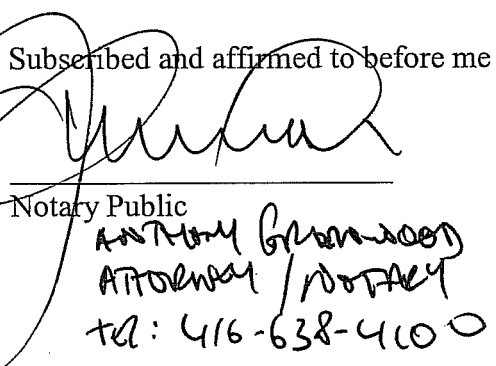 Subscribed and affirmed to before me
Notary Public
ANTHONY GREENWOOD
ATTORNEY / NOTARY
tel: 416-638-4100